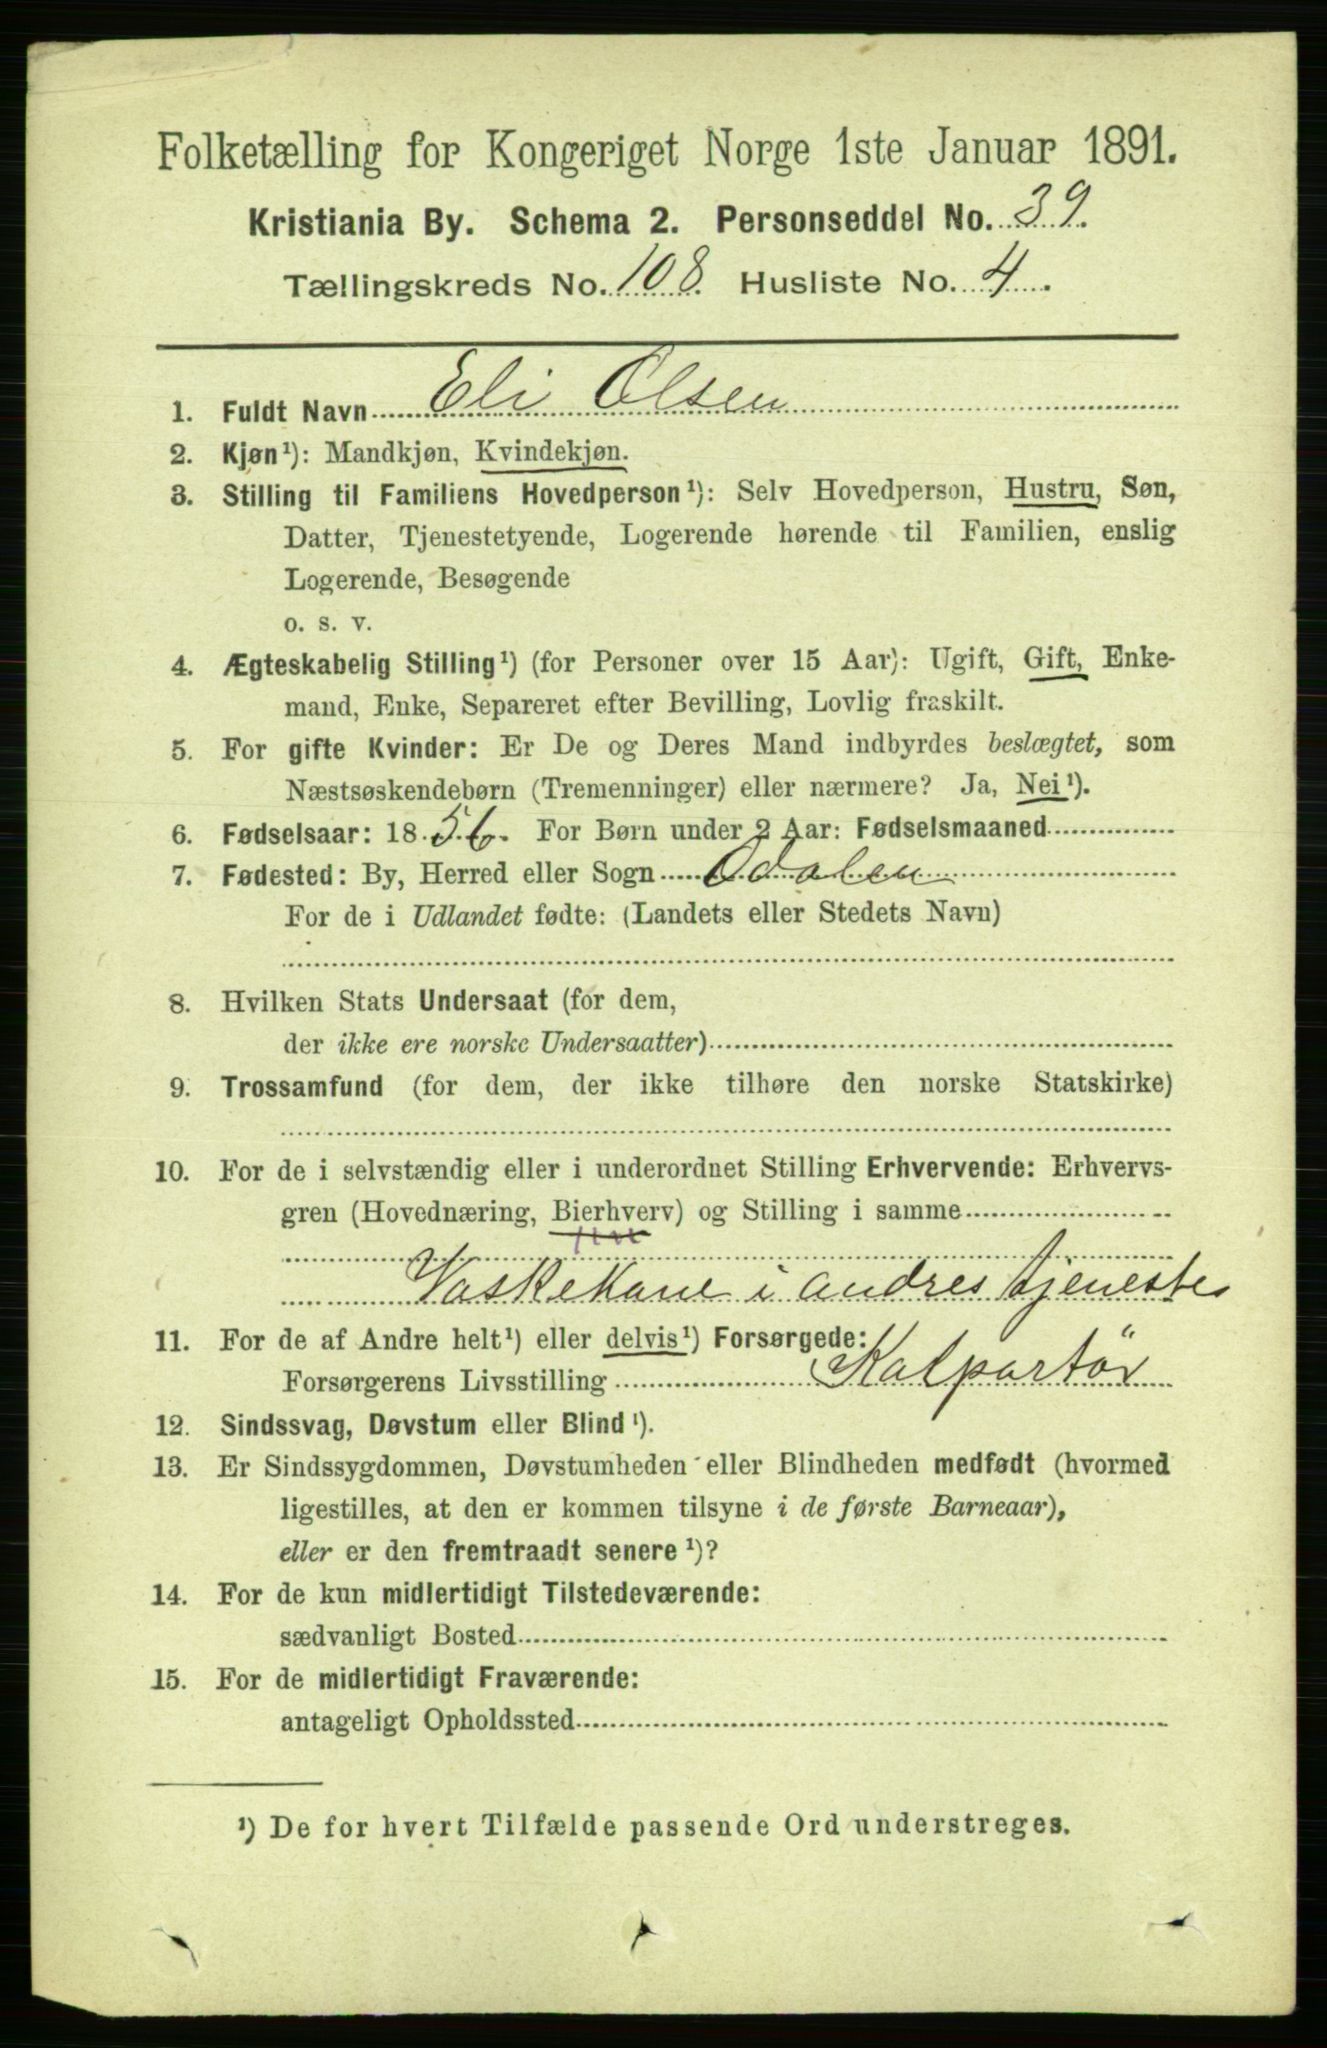 Folketælling for Kongeriget Norge 1ste Januar 1891.
Kristiania By. Schema 2. Personseddel No. 39.
Tællingskreds No. 108. Husliste No. 4.
1. Fuldt Navn Eli Olsen
2. Kjøn¹): Mandkjøn, Kvindekjøn.
3. Stilling til Familiens Hovedperson¹): Selv Hovedperson, Hustru, Søn,
Datter, Tjenestetyende, Logerende hørende til Familien, enslig
Logerende, Besøgende
o. s. v.
4. Ægteskabelig Stilling¹) (for Personer over 15 Aar): Ugift, Gift, Enke-
mand, Enke, Separeret efter Bevilling, Lovlig fraskilt.
5. For gifte Kvinder: Er De og Deres Mand indbyrdes beslægtet, som
Næstsøskendebørn (Tremenninger) eller nærmere? Ja, Nei¹).
6. Fødselsaar: 1856. For Børn under 2 Aar: Fødselsmaaned
7. Fødested: By, Herred eller Sogn Odalen
For de i Udlandet fødte: (Landets eller Stedets Navn)
8. Hvilken Stats Undersaat (for dem,
der ikke ere norske Undersaatter)
9. Trossamfund (for dem, der ikke tilhøre den norske Statskirke)
10. For de i selvstændig eller i underordnet Stilling Erhvervende: Erhvervs-
gren (Hovednæring, Bierhverv) og Stilling i samme
Vaskekone i andres tjeneste
11. For de af Andre helt¹) eller delvis¹) Forsørgede:
Forsørgerens Livsstilling Kolportör
12. Sindssvag, Døvstum eller Blind¹).
13. Er Sindssygdommen, Døvstumheden eller Blindheden medfødt (hvormed
ligestilles, at den er kommen tilsyne i de første Barneaar),
eller er den fremtraadt senere¹)?
14. For de kun midlertidigt Tilstedeværende:
sædvanligt Bosted
15. For de midlertidigt Fraværende:
antageligt Opholdssted
¹) De for hvert Tilfælde passende Ord understreges.